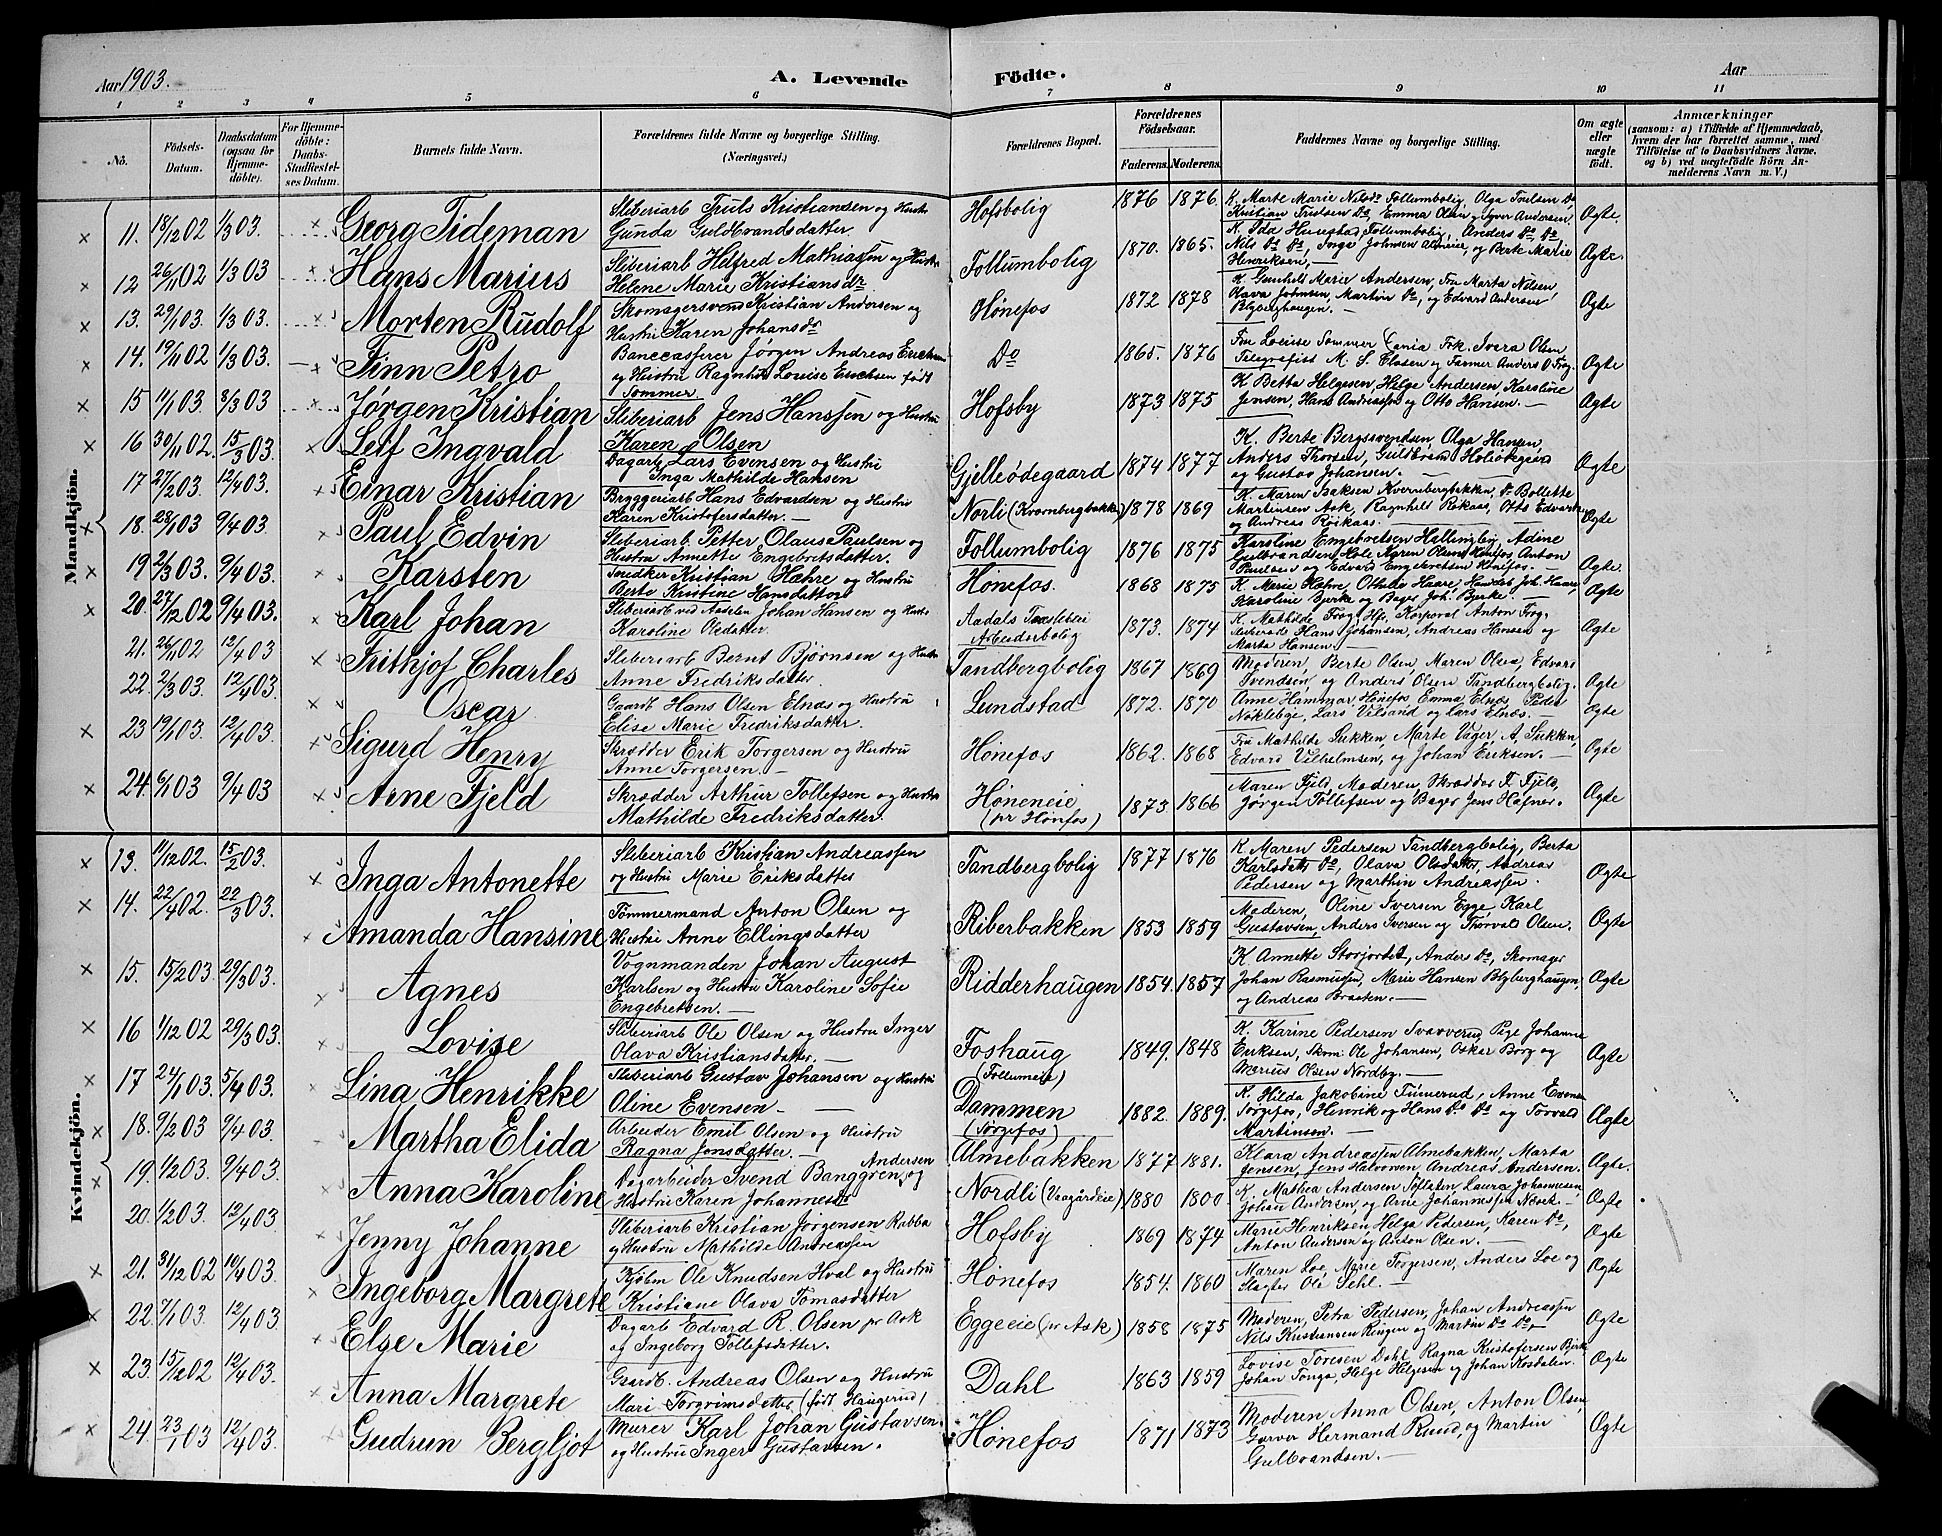 Aar 1903.
A. Levende Födte.
Aar
1 2 3 4 5 6 7 8 9 10 11
No.
Födsels-Datum.
Daabsdatum (ogsaa för Hjemme-döbte).
For Hjemme-döbte: Daabs-Stadfæstel-ses Datum.
Barnets fulde Navn.
Forældrenes fulde Navne og borgerlige Stilling. (Næringsvei.)
Forældrenes Bopæl.
Forældrenes Födselsaar.
Faderens. Moderens.
Faddernes Navne og borgerlige Stilling.
Om ægte eller uægte födt.
Anmærkninger
(saasom: a) i Tilfælde af Hjemmedaab,
hvem der har forrettet samme, med
Tilföielse af to Daabsvidners Navne,
og b) ved uægtefödte Börn An-
melderens Navn m. V.)
Mandkjön.
11. 18/12 02 1/3 03. Georg Tideman Sliberiarb Truls Kristiansen og Hustr Gunda Guldbrandsdatter. Hofsbolig 1876 1876. K. Marte Marie Nilsdr Follumbolig, Olga Trulsen Do Kristian Trulsen Do, Emma Olsen og Iver Andersen. Ægte.
12 26/11 02 1/3 03 Hans Marius Sliberiarb Hilfred Mathiassen og Hustr Helene Marie Kristiansdr Follumbolig 1870. 1865. K. Ida Follumbolig, Anders Do, Do Nils Do Do, Inge Johnsen og Berte Marie Henriksen, Ægte.
13. 29/1 03. 1/3 03. Morten Rudolf Skomagersvend Kristian Andersen og Hustru Karen Johansdr Hønefos 1872 1878 K. Gunhild Marie Andersen, Fru Marta Nilsen Olava Johnsen, Martin Do, og Edvard Andersen Blybergshaugen. Ægte
14. 19/11 02 1/3 03. Finn Petro Banecasserer Jørgen Andreas Erichsen og Hustru Ragnhild Louise Erichsen født Sommer Do 1865. 1876 Fru Louise Sommer Frk. Svera Olsen Telegrafist M. S. Closen og Farmer Anders O Frog. Ægte
15 11/1 03. 8/3 03 Jørgen Kristian Sliberiarb Jens Hanssen og Hustru Karen Olsen Hofsby 1873 1875 K Betta Helgesen, Helge Andersen, Karoline Jensen, Hans Andreassen og Otto Hansen. Ægte
16 30/11 02. 15/3 03. Leif Ingvald Dagarb Lars Evensen og Hustru Inga Mathilde Hansen Gjelleødegaard 1874 1877 K. Berte Bergssvendsen, Olga Hansen, Anders Thorsen, Guldbrand og Gustav Johansen. Ægte
17 27/2 03. 12/4 03. Einar Kristian Bryggeriarb Hans Edvardsen og Hustru Karen Kristofersdatter. Norli (Kvernbergbakke) 1878 1869 K. Maren Isaksen Kvernbergbakken, Do Bollette Martinsen Ask, Ragnhild Røkaas, Otto Edvards og Andreas Røikaas. Ægte
18. 28/1 03 9/4 03 Paul Edvin Sliberiarb. Petter Olaus Paulsen og Hustru Annette Engebretsdatter. Follumbolig 1876 1875 Karoline Engebretsen Hallingby, Adine Gulbrandsen, Hole, Karen Olsen Hønefos, Anton Paulsen og Edvard Engebretsen Hønefos. Ægte.
19 2/3 03. 9/4 03. Karsten Snedker Kristian Hæhre og Hustru Berte Kristine Hansdatter Hønefos. 1868 1875 K. Marie Hæhre, Othilie Haare, Handelsb Joh. Haare, Karoline Bjerke og Bager Joh. Bjerke. Ægte
20. 27/12 02 9/4 03. Karl Johan Sliberiarb ved Aadalen Johan Hansen og Hustr Karoline Olsdatter Aadals Træsliberi Arbeiderbolig 1873. 1874 K. Mathilde Frog, Hfs, Korporal Anton Frog, Hans Johansen, Andreas Hansen og Marta Hansen. Ægte
21. 26/11 02 12/4 03 Frithjof Charles Sliberiarb Bernt Bjørnsen og Hustr Anne Fredriksdatter. Tandbergbolig 1867 1869 Moderen, Berte Olsen, Maren Olsen, Edvard Svendsen, og Anders Olsen Tandbergbolig. Ægte
22. 2/3 03. 12/4 03. Oscar Gaardb. Hans Olsen Elnæs og Hustru Elise Marie Fredriksdatter. Lundstad 1872. 1870 Anne Hammer, Hønefos, Emma Elnæs, Peder Nøklebye, Lars Vilsand og Lars Elnæs. Ægte
23 19/1 03. 12/4 03. Sigurd Henry Skrædder Erik Torgersen og Hustru Anne Torgersen. Hønefos 1862. 1868 Fru Mathilde Sukken, Marte Vager, A. Sukken, Edvard Vilhelmsen, og Johan Eriksen. Ægte
24. 6/1 03 9/4 03 Arne Fjeld Skrædder Arthur Tollefsen og Hustru Mathilde Fredriksdatter. Høneneie, (pr Hønefos) 1873 1866 Maren Fjeld, Moderen, Skrædder F. Fjeld, Jørgen Tollefsen og Bager Jens Høfner. Ægte
Kvindekjön.
13. 11/12 02. 15/2 03. Inga Antonette Sliberiarb Kristian Andreassen og Hustru Marie Eriksdatter Tandbergbolig 1877 1876 K Maren Pedersen Tandbergbolig, Berta Karlsdatter Do, Olava Olsdatter, Andreas Pedersen og Marthin Andreassen. Ægte
14. 22/4 02. 22/3 03. Amanda Hansine Tømmermand Anton Olsen og Hustru Anne Ellingsdatter Riberbakken 1853 1859 Moderen, Oline Iversen Egge, Karl Gustavsen, Anders Iversen og Thorvald Olsen. Ægte
15. 15/2 03. 29/3 03. Agnes Vognmanden Johan August Karlsen og Hustru Karoline Sofie Engebretsen. Ridderhaugen 1854. 1857 K Annette Storjordet, Anders Do, Skomager Johan Rasmussen, Marie Hansen Blybergshaugen, og Andreas Braaten. Ægte
16 1/12 02 29/3 03. Lovise Sliberiarb Ole Olsen og Hustru Inger Olava Kristiansdatter. Foshaug (Follumeie) 1849. 1848 K. Karine Pedersen Svarverud, Pige Johanne Eriksen, Skom: Ole Johansen, Oskar Borg og Marius Olsen Nordby. Ægte
17 24/1 03. 5/4 03. Lina Henrikke Sliberiarb Gustav Johansen og Hustru Oline Evensen Dammen (Sørgefos) 1882. 1889. K. Hilda Jakobine Tømerud, Anne Evensen Sørgefos, Henrik og Hans Do Do og Torvald Martinsen. Ægte
18. 9/2 03 9/4 03. Martha Elida Arbeider Emil Olsen og Hustru Ragna Jonsdatter. Almebakken 1877 1881. Klara Andreassen Almebakken, Marta Jensen, Jens Halvorsen, Andreas Andersen. Ægte.
19. 1/2 03. 9/4 03. Anna Karoline Dagarbeider Svend Banggren Andersen og Hustru Karen Johannesdr Nordli (Vaagårdeie) 1880 1800 K. Mathea Andersen Søflaten, Laura Johannesen, Johan Andersen, og Arne Johannessen Næsek. Ægte
20. 1/2 03. 12/4 03. Jenny Johanne Sliberiarb Kristian Jørgensen Rabba og Hustru Mathilde Andreassen Hofsby 1869 1874 Marie Henriksen, Helga Pedersen, Karen Do, Anton Andersen og Anton Olsen. Ægte
21. 31/12 02 10/4 03. Ingeborg Margrete Kjøbm Ole Knudsen Hval og Hustru Kristiane Olava Tomasdatter Hønefos 1854. 1860 Maren Loe, Marie Torgersen, Anders Loe og Slagter Ole Sehl. Ægte
22. 7/1 03. 12/4 03. Else Marie Dagarb Edvard R. Olsen pr Ask og Ingeborg Tollefsdatter. Eggeeie (pr Ask) 1858 1875 Moderen, Petra Pedersen, Johan Andreassen Nils Kristiansen Ringen og Martin Do Do Ægte
23. 15/12 02 12/4 03. Anna Margrete Gaardb. Andreas Olsen og Hustru Mari Torgrimsdatter (født Haugerud) Dahl 1863 1859 Lovise Toresen Dahl, Ragna Kristofersen Berke Johan Tonga, Helge Helgesen og Johan Rosdalen. Ægte
24. 23/1 03 12/4 03. Gudrun Bergljot Murer Karl Johan Gustavsen og Hustru Inger Gustavsen. Hønefos 1871 1873 Moderen, Anna Olsen, Anton Olsen Garver Hermand Ruud, og Martin Gulbrandsen. Ægte